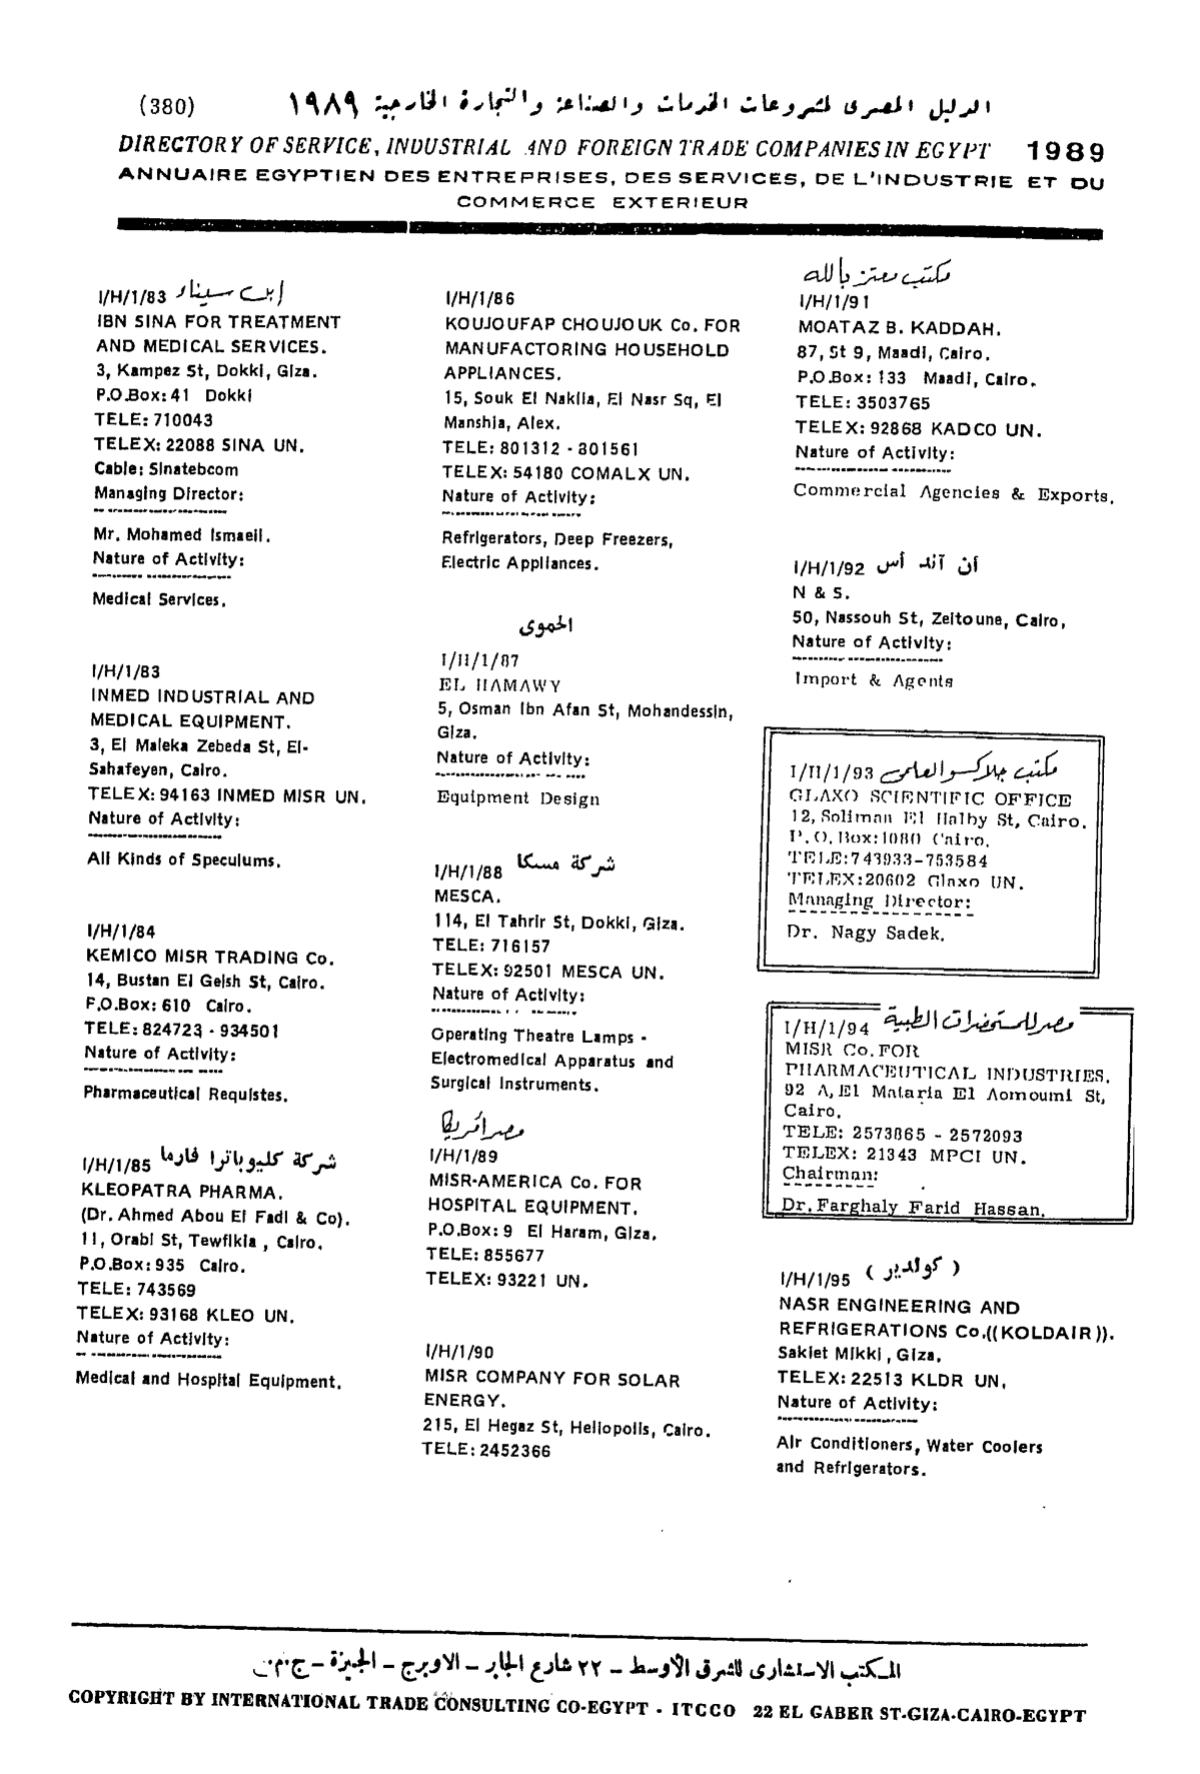 (380) الدليل المصرى لمشروعات الخدمات والصناعة والتجارة الخارجية ١٩٨٩
DIRECTORY OF SERVICE, INDUSTRIAL AND FOREIGN TRADE COMPANIES IN EGYPT 1989
ANNUAIRE EGYPTIEN DES ENTREPRISES, DES SERVICES, DE L'INDUSTRIE ET DU
COMMERCE EXTERIEUR
I/H/1/83 ابن سيناء
IBN SINA FOR TREATMENT
AND MEDICAL SERVICES.
3, Kampez St, Dokki, Giza.
P.O.Box: 41 Dokki
TELE: 710043
TELEX: 22088 SINA UN.
Cable: Sinatebcom
Managing Director:
Mr. Mohamed Ismaeil.
Nature of Activity:
Medical Services.
I/H/1/83
INMED INDUSTRIAL AND
MEDICAL EQUIPMENT.
3, El Maleka Zebeda St, El-
Sahafeyen, Cairo.
TELEX: 94163 INMED MISR UN.
Nature of Activity:
All Kinds of Speculums.
I/H/1/84
KEMICO MISR TRADING Co.
14, Bustan El Geish St, Cairo.
P.O.Box: 610 Cairo.
TELE: 824723 - 934501
Nature of Activity:
Pharmaceutical Requistes.
I/H/1/85 شركة كليوباترا فارما
KLEOPATRA PHARMA.
(Dr. Ahmed Abou El Fadl & Co).
11, Orabi St, Tewfikia , Cairo.
P.O.Box: 935 Cairo.
TELE: 743569
TELEX: 93168 KLEO UN.
Nature of Activity:
Medical and Hospital Equipment.
I/H/1/86
KOUJOUFAP CHOUJOUK Co. FOR
MANUFACTORING HOUSEHOLD
APPLIANCES.
15, Souk El Naklia, El Nasr Sq, El
Manshia, Alex.
TELE: 801312 - 801561
TELEX: 54180 COMALX UN.
Nature of Activity:
Refrigerators, Deep Freezers,
Electric Appliances.
الحموى
I/H/1/87
EL HAMAWY
5, Osman Ibn Afan St, Mohandessin,
Giza.
Nature of Activity:
Equipment Design
I/H/1/88 شركة مسكا
MESCA.
114, El Tahrir St, Dokki, Giza.
TELE: 716157
TELEX: 92501 MESCA UN.
Nature of Activity:
Operating Theatre Lamps -
Electromedical Apparatus and
Surgical Instruments.
مصر امريكا
I/H/1/89
MISR-AMERICA Co. FOR
HOSPITAL EQUIPMENT.
P.O.Box: 9 El Haram, Giza.
TELE: 855677
TELEX: 93221 UN.
I/H/1/90
MISR COMPANY FOR SOLAR
ENERGY.
215, El Hegaz St, Heliopolis, Cairo.
TELE: 2452366
مكتب معتز بالله
I/H/1/91
MOATAZ B. KADDAH.
87, St 9, Maadi, Cairo.
P.O.Box: 133 Maadi, Cairo.
TELE: 3503765
TELEX: 92868 KADCO UN.
Nature of Activity:
Commercial Agencies & Exports.
I/H/1/92 أن آند أس
N & S.
50, Nassouh St, Zeitoune, Cairo,
Nature of Activity:
Import & Agents
I/H/1/93 مكتب جلاكسو العلمى
GLAXO SCIENTIFIC OFFICE
12, Soliman El Halby St, Cairo.
P.O.Box:1080 Cairo.
TELE:743933-753584
TELEX:20602 Glaxo UN.
Managing Director:
Dr. Nagy Sadek.
I/H/1/94 مصر للمستحضرات الطبية
MISR Co.FOR
PHARMACEUTICAL INDUSTRIES.
92 A, El Mataria El Aomoumi St,
Cairo.
TELE: 2573865 - 2572093
TELEX: 21343 MPCI UN.
Chairman:
Dr.Farghaly Farid Hassan.
I/H/1/95 (كولدير)
NASR ENGINEERING AND
REFRIGERATIONS Co.((KOLDAIR)).
Sakiet Mikki , Giza.
TELEX: 22513 KLDR UN.
Nature of Activity:
Air Conditioners, Water Coolers
and Refrigerators.
المكتب الاستشارى للشرق الأوسط - ٢٢ شارع الجابر - الاوبرج - الجيزة - ج.م.
COPYRIGHT BY INTERNATIONAL TRADE CONSULTING CO-EGYPT - ITCCO 22 EL GABER ST-GIZA-CAIRO-EGYPT